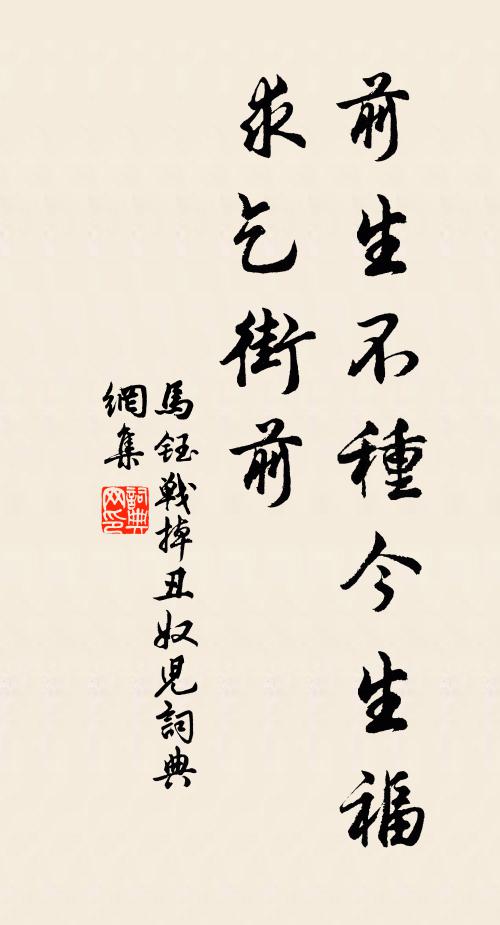 前生不種今生福
求乞街前
馬鈺戰掉丑奴兒詞典
網集
詞典
网印